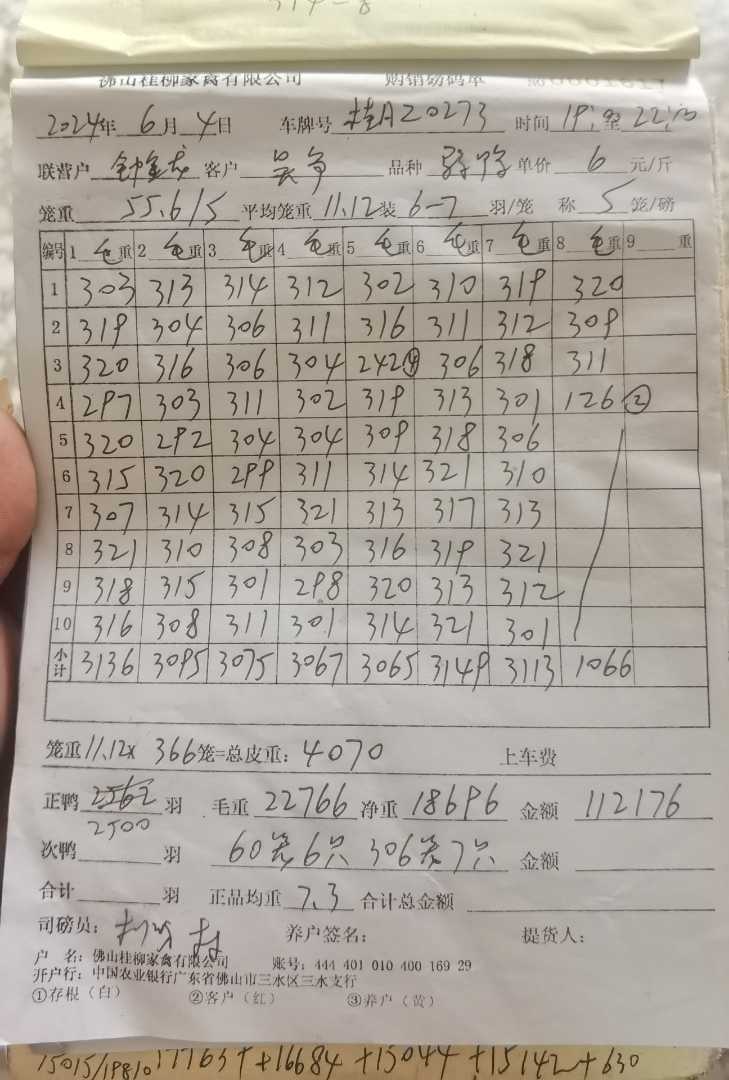 314-8
佛山桂柳家禽有限公司 购销磅码单
2024年 6月 4日 车牌号 桂AZ0273 时间 19: 至 22:
联营户 客户 吴 品种 单价 6 元/斤
笼重 55.6/5 平均笼重 11.12 装 6-7 羽/笼 称 5 笼/磅
编号 1 毛重 2 毛重 3 毛重 4 毛重 5 毛重 6 毛重 7 毛重 8 毛重 9 重
1 303 313 314 312 302 310 319 320
2 319 304 306 311 316 311 312 309
3 320 316 306 304 242④ 306 318 311
4 297 303 311 302 319 313 301 126②
5 320 292 304 304 309 318 306
6 315 320 299 311 314 321 310
7 307 314 315 321 313 317 313
8 321 310 308 303 316 319 321
9 318 315 301 298 320 313 312
10 316 308 311 301 314 321 301
小计 3136 3095 3075 3067 3065 3149 3113 1066
笼重 11.12x 366笼=总皮重: 4070 上车费
正鸭 2562 羽 毛重 22766 净重 18696 金额 112176
2500
次鸭 羽 60笼6只 306笼7只 金额
合计 羽 正品均重 7.3 合计总金额
司磅员: 养户签名: 提货人:
户 名: 佛山桂柳家禽有限公司 账号: 444 401 010 400 169 29
开户行: 中国农业银行广东省佛山市三水区三水支行
①存根(白) ②客户(红) ③养户(黄)
15015/19810 +16684 +15044 +15142 + 630